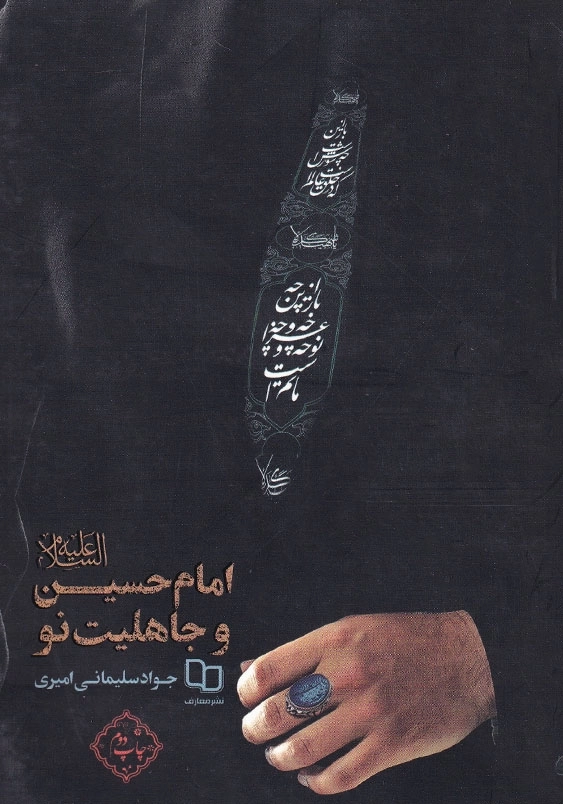 باز این
چه شورش است
که در خلق عالم
باز این چه
نوحه و چه عزا و چه
ماتم است
علیه السلام
امام حسین
و جاهلیت نو
جواد سلیمانی امیری
نشر معارف
چاپ دوم